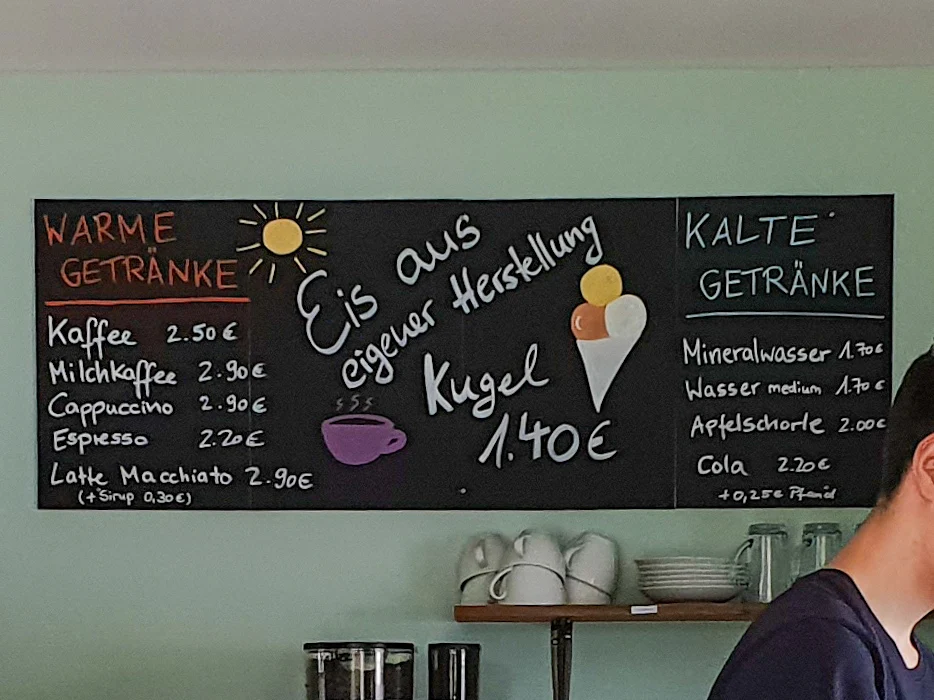 WARME
GETRÄNKE
Kaffee 2.50 €
Milchkaffee 2.90 €
Cappuccino 2.90 €
Espresso 2.20 €
Latte Macchiato 2.90 €
(+ Sirup 0,30 €)
Eis aus
eigener Herstellung
Kugel
1.40 €
KALTE
GETRÄNKE
Mineralwasser 1.70 €
Wasser medium 1.70 €
Apfelschorle 2.00 €
Cola 2.20 €
+ 0,25 € Pfand